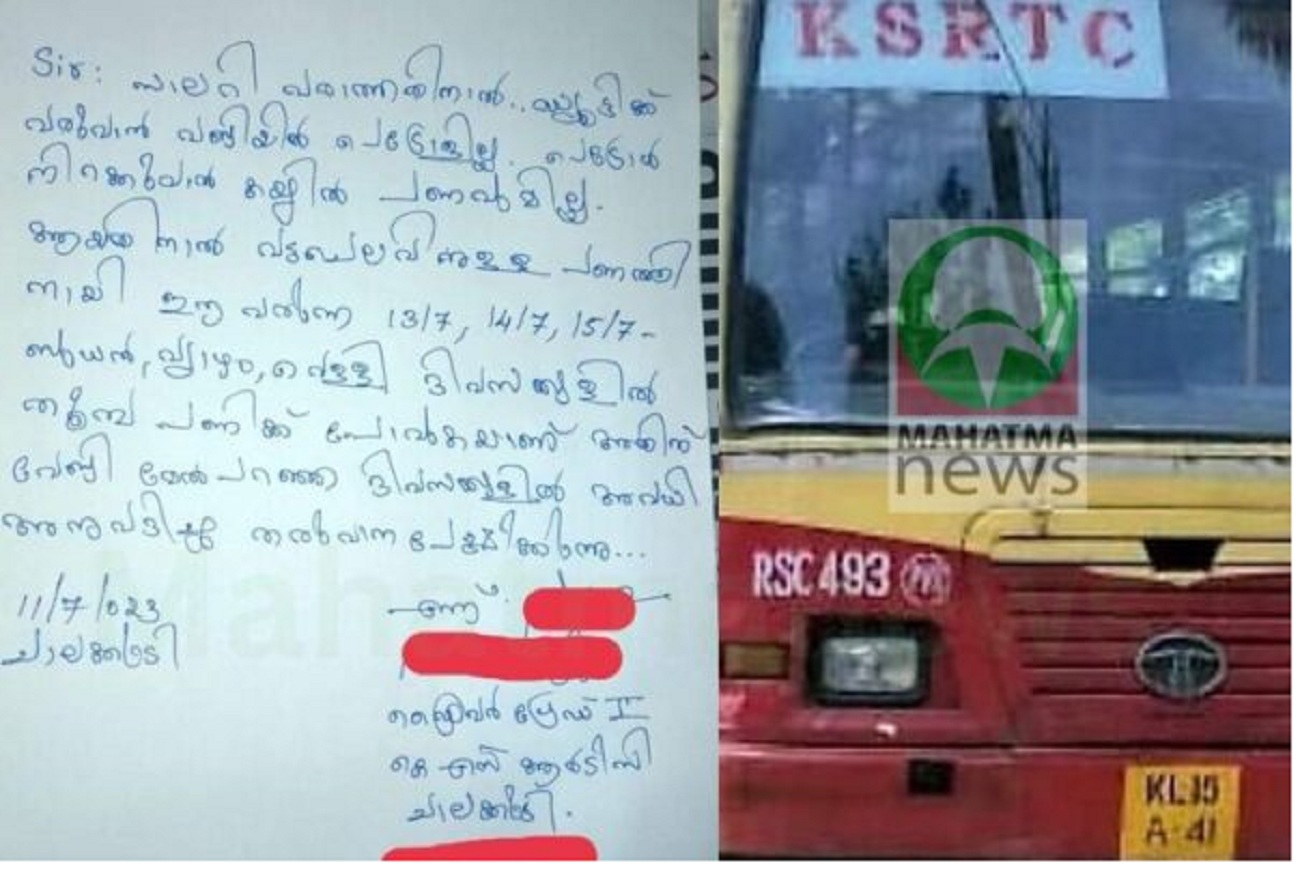 Sir: സാലറി വരാത്തതിനാൽ.. ഡ്യൂട്ടിക്ക്
വരുവാൻ വണ്ടിയിൽ പെട്രോളില്ല. പെട്രോൾ
നിറക്കുവാൻ കയ്യിൽ പണവുമില്ല.
ആയതിനാൽ വട്ടചെലവിനുള്ള പണത്തി
നായി ഈ വരുന്ന 13/7, 14/7, 15/7-
ബുധൻ, വ്യാഴം, വെള്ളി ദിവസങ്ങളിൽ
തൂമ്പ പണിക്ക് പോവുകയാണ് അതിന്
വേണ്ടി മേൽപറഞ്ഞ ദിവസങ്ങളിൽ അവധി
അനുവദിച്ചു തരുവാന പേക്ഷിക്കുന്നു...
11/7/023
ചാലക്കുടി
എന്ന്
ഡ്രൈവർ ഗ്രേഡ് II
കെ എസ് ആർടിസി
ചാലക്കുടി.
KSRTC
MAHATMA
news
RSC 493
KL 15
A-41